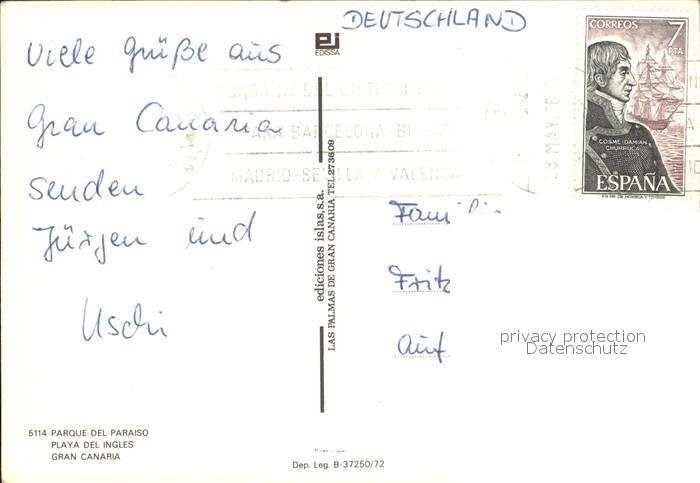 DEUTSCHLAND
Viele Grüße aus
Gran Canaria
senden
Jürgen und
Uschi
EDISSA
ediciones islas, s.a.
LAS PALMAS DE GRAN CANARIA TEL. 273609
CORREOS 7 PTA
COSME DAMIAN
CHURRUCA
ESPAÑA
PONGA Nº DEL DISTRITO
PARA BARCELONA-BILBAO
MADRID-SEVILLA Y VALENCIA
28 MAY. 76
Familie
Fritz
privacy protection
Datenschutz
5114 PARQUE DEL PARAISO
PLAYA DEL INGLES
GRAN CANARIA
Dep. Leg. B-37250/72